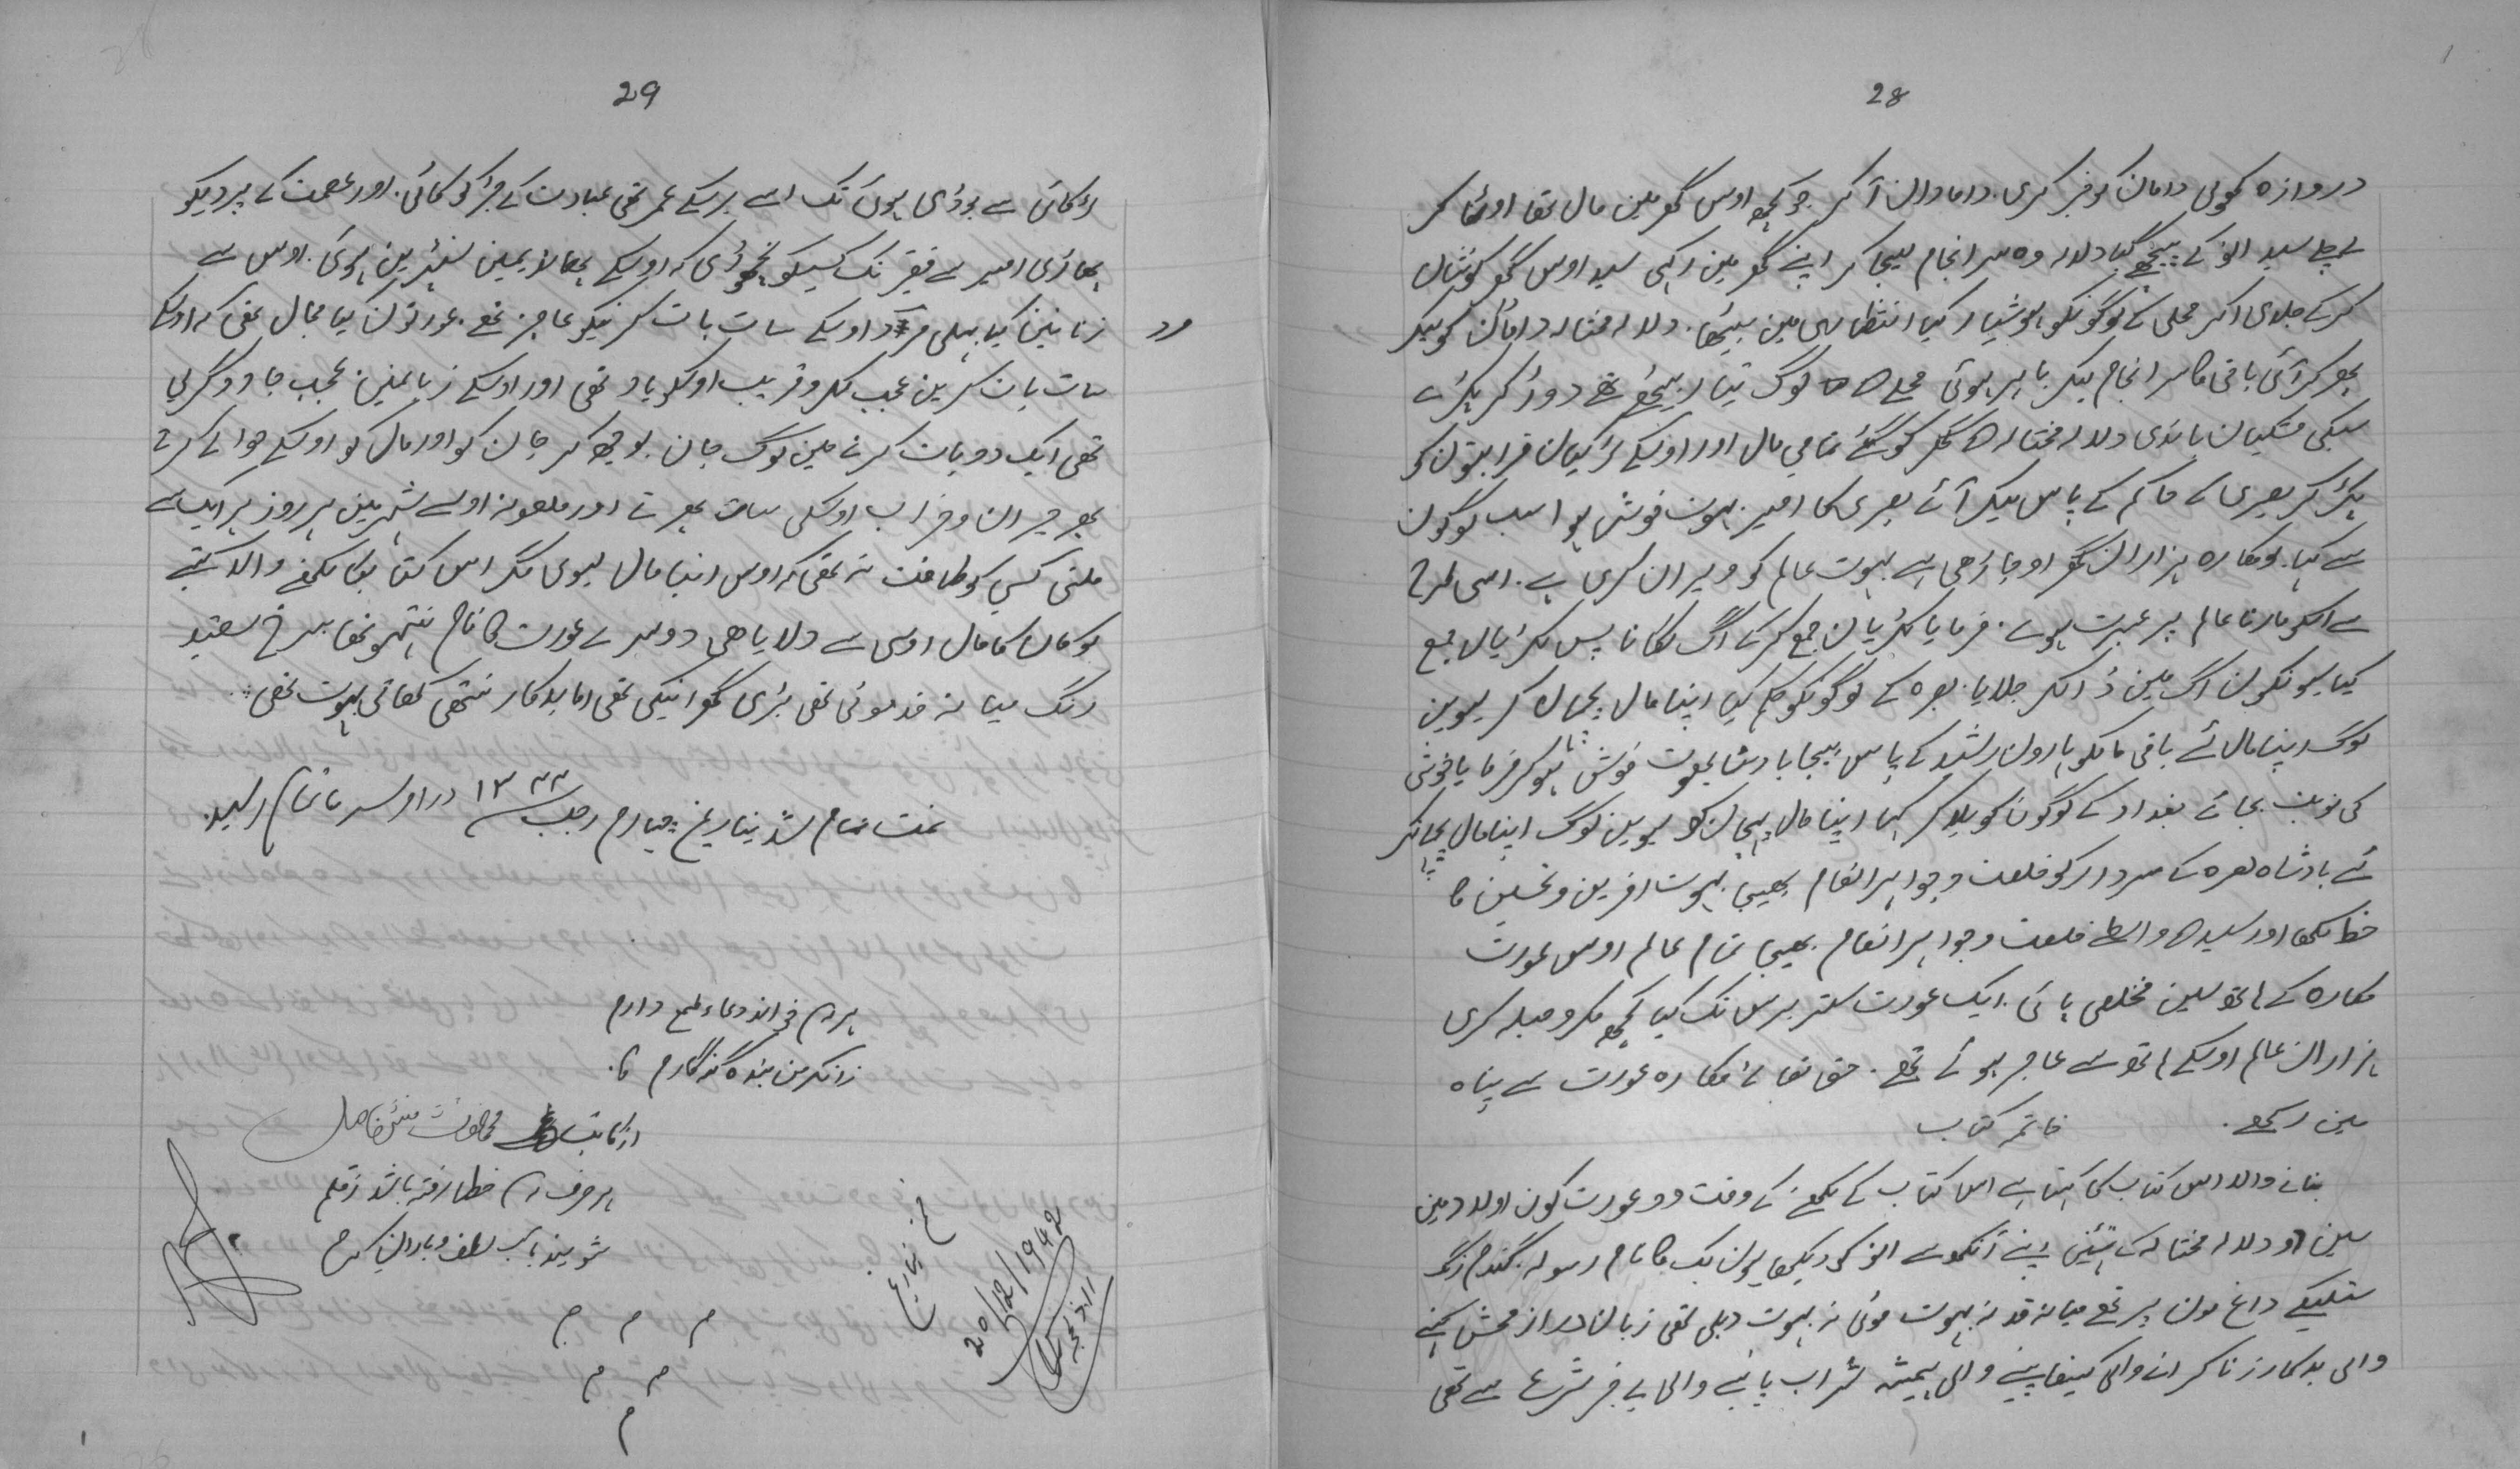 28
دروازہ کھولی دامان کو خبر کری. داماداں آ کر جو کچھ اوس گھر میں مال تھا اوٹھا کر
لے چلے سید انو کے پیچھے گیا دلالہ وہ سر انجام لیجا کر اپنے گھر میں رکھی سید اوس گھر کو نشان
کر کے جلدی آکر محلی کے لوگونکو ہوشیار کیا انتظاری میں بیٹھا. دلالہ مختالہ دامان کو لیکر
پھر کر آئی باقی کا سر انجام لیکر باہر ہوئی محلے کے لوگ تیار بیٹھے تھے دوڑ کر پکڑے
سبکی مشکیان باندی دلالہ مختالہ کے گھر کو گئے تمامی مال اور اوسکے لڑکیان قرابتون کو
پکڑ کر بصری کے حاکم کے پاس لیکر آئے بصری کا امیر بہوت خوش ہوا سب لوگون
سے کہا. یو مکارہ ہزاراں گھر اوجاڑی ہے بہوت عالم کو ویران کری ہے. اسی طرح
سے اسکو مارنا عالم پر عبرت ہوے. فرمایا لکڑیان جمع کر کے آگ لگانا پس لکڑیاں جمع
کیا یونکون آگ میں ڈالکر جلایا. بصرہ کے لوگونکو حکم کیا اپنا مال پچھان کر لیوین
لوگ اپنا مال لئے باقی مالکو ہارون رشید کے پاس بیجا بادشاہ بہوت خوش ہو کر فرمایا خوشی
کی نوبت بجائے بغداد کے لوگون کو بلا کر کہا اپنا مال پچھان کر لیوین لوگ اپنا مال پچھانکر
لئے بادشاہ بصرہ کے سردار کو خلعت و جواہر انعام بھیجا بہوت افرین و تحسین کا
خط لکھا اور سید کے واسطے خلعت و جواہر انعام بھیجا تمام عالم اوس عورت
مکارہ کے ہاتھ سین مخلصی پائی. ایک عورت ستر برس تک کیا کچھ مکر و حیلہ کری
ہزاراں عالم اوسکے ہاتھ سے عاجز ہوئے تھے. حق تعالیٰ مکارہ عورت سے پناہ
میں رکھے. خاتمہ کتاب
بنانے والا اس کتاب کی کہتا ہے اس کتاب کے لکھنے کے وقت دو عورت کون اولاد میں
سین او دلالہ مختالہ کے تئیں اپنے آنکھو سے انو کو دیکھا ہوں یک کا نام رسولہ گندم رنگ
ستلیکے داغ موں پر تھے میانہ قد نہ بہوت موٹی نہ بہوت دبلی تھی زبان دراز فحش کہنے
والی بدکار زنا کرانے والی کیفا پینے والی ہمیشہ شراب پینے والی بے خبر شرع سے تھی
29
لڑکائی سے بوڈی ہوئ تک اسے برسکے عمر تھی عبادت کے جڑ کو کاٹی. اور عصمت کے پردیکو
پھاڑی امیر سے فقیر تک کسیکو نچھوڑی کہ اوسکے
زنانین کیا بہلی مرد اوسکے سات بات کرنیکو عاجز تھے. عورتون کیا مجال تھی کہ اوسکے
مرد
سات بات کرین عجب مکر و فریب اوسکو یاد تھی اور اوسکے زبانمین عجب جادوگری
تھی ایک دو بات کرنے میں لوگ جان بوجھ کر جان کو اور مال کو اوسکے حوالے کرتے
پھر حیران و خراب اوسکی سات پھرتے اور ملعونہ اوسے شہر میں ہر روز ہر ایک سے
ملتی کسی کو طاقت نہ تھی کہ اوس اپنا مال لیوی مگر اس کتابکا لکھنے والا کتے
لوکان کا مال اوسی سے دلایا ھی دوسرے عورت کا نام تھا سرخ سفید
رنگ میانہ قد موٹی تھی بڑی گھرانیکی تھی اما بدکار کھاتی بہوت تھی
تمت تمام شد بتاریخ چہارم رجب ١٣٤٤ در اول
ہر کہ خواند دعاء طمع دارم
زانکہ من بندہ گنہگارم
از کاتب
ہر حرف کہ خطا رفتہ باشد ز قلم
شویند بآب لطف و باران کرم
م م م
م م
م
20/12/1942